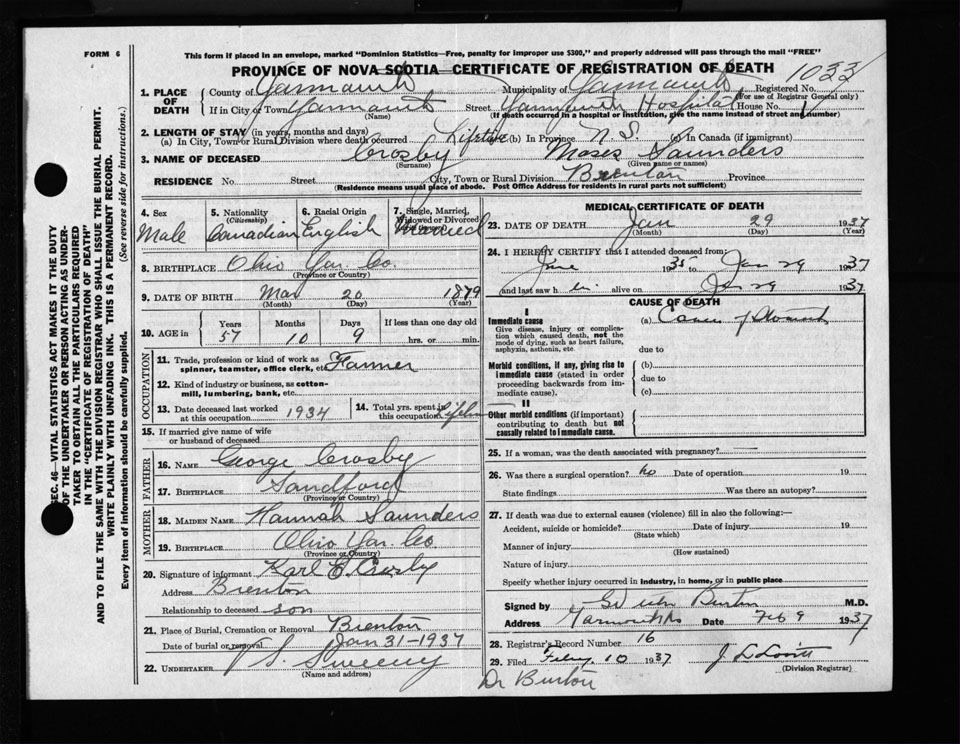 FORM 6
This form if placed in an envelope, marked "Dominion Statistics—Free, penalty for improper use $300," and properly addressed will pass through the mail "FREE"
PROVINCE OF NOVA SCOTIA—CERTIFICATE OF REGISTRATION OF DEATH
1033
1. PLACE OF DEATH
County of Yarmouth Municipality of Yarmouth Registered No.
(For use of Registrar General only)
If in City or Town Yarmouth Street Yarmouth Hospital House No.
(Name) (If death occurred in a hospital or institution, give the name instead of street and number)
2. LENGTH OF STAY (in years, months and days)
(a) In City, Town or Rural Division where death occurred Lifetime (b) In Province N.S. (c) In Canada (if immigrant)
3. NAME OF DECEASED Crosby Moses Saunders
(Surname) (Given name or names)
RESIDENCE No. Street City, Town or Rural Division Brenton Province
(Residence means usual place of abode. Post Office Address for residents in rural parts not sufficient)
4. SEX Male
5. Nationality (Citizenship) Canadian
6. Racial Origin English
7. Single, Married, Widowed or Divorced Married
8. BIRTHPLACE Ohio Yar. Co.
(Province or Country)
9. DATE OF BIRTH Mar 20 1879
(Month) (Day) (Year)
10. AGE in Years 57 Months 10 Days 9 If less than one day old hrs. or min.
OCCUPATION
11. Trade, profession or kind of work as spinner, teamster, office clerk, etc. Farmer
12. Kind of industry or business, as cotton-mill, lumbering, bank, etc.
13. Date deceased last worked at this occupation 1934
14. Total yrs. spent in this occupation
15. If married give name of wife or husband of deceased
FATHER
16. NAME George Crosby
17. BIRTHPLACE Sandford
(Province or Country)
MOTHER
18. MAIDEN NAME Hannah Saunders
19. BIRTHPLACE Ohio Yar. Co.
(Province or Country)
20. Signature of informant Karl E. Crosby
Address Brenton
Relationship to deceased son
21. Place of Burial, Cremation or Removal Brenton
Date of burial or removal Jan 31-1937
22. UNDERTAKER V.S. Sweeny
MEDICAL CERTIFICATE OF DEATH
23. DATE OF DEATH Jan 29 1937
(Month) (Day) (Year)
24. I HEREBY CERTIFY that I attended deceased from:
June 1935 to Jan 29 1937
and last saw h im alive on Jan 29 1937
CAUSE OF DEATH
I
Immediate cause
Give disease, injury or complication which caused death, not the mode of dying, such as heart failure, asphyxia, asthenia, etc.
(a) Cancer of Stomach
due to
Morbid conditions, if any, giving rise to immediate cause (stated in order proceeding backwards from immediate cause).
(b)
due to
(c)
II
Other morbid conditions (if important) contributing to death but not causally related to immediate cause.
25. If a woman, was the death associated with pregnancy?
26. Was there a surgical operation? no Date of operation 19
State findings Was there an autopsy?
27. If death was due to external causes (violence) fill in also the following:—
Accident, suicide or homicide? Date of injury 19
(State which)
Manner of injury
(How sustained)
Nature of injury
Specify whether injury occurred in industry, in home, or in public place
Signed by Burton M.D.
Address Yarmouth NS Date Feb 9 1937
28. Registrar's Record Number 16
29. Filed Feby. 10 1937
(Division Registrar)
Dr Burton
SEC. 46—VITAL STATISTICS ACT MAKES IT THE DUTY
OF THE UNDERTAKER OR PERSON ACTING AS UNDERTAKER TO OBTAIN ALL THE PARTICULARS REQUIRED
IN THE "CERTIFICATE OF REGISTRATION OF DEATH"
AND TO FILE THE SAME WITH THE DIVISION REGISTRAR WHO SHALL ISSUE THE BURIAL PERMIT.
WRITE PLAINLY WITH UNFADING INK. THIS IS A PERMANENT RECORD.
Every item of information should be carefully supplied. (See reverse side for instructions.)